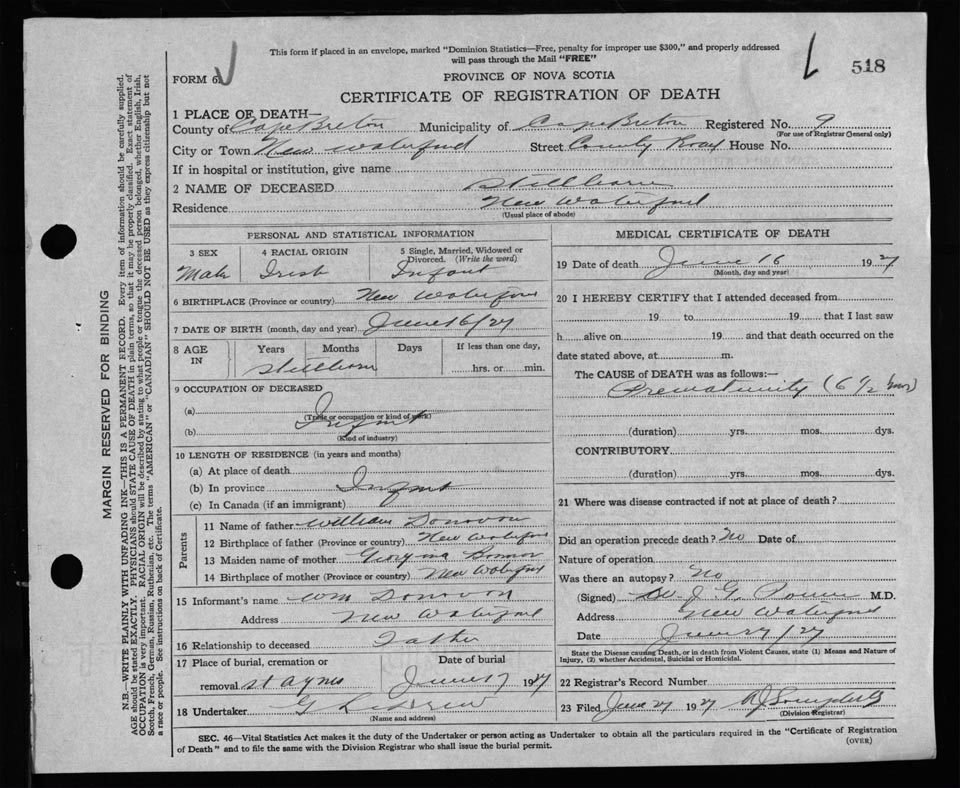 This form if placed in an envelope, marked "Dominion Statistics—Free, penalty for improper use $300," and properly addressed
will pass through the Mail "FREE"
518
FORM 6.
PROVINCE OF NOVA SCOTIA
CERTIFICATE OF REGISTRATION OF DEATH
1 PLACE OF DEATH—
County of Cape Breton Municipality of Cape Breton Registered No. 9
(For use of Registrar General only)
City or Town New Waterford Street County Road House No.
If in hospital or institution, give name
2 NAME OF DECEASED Stillborn
Residence New Waterford
(Usual place of abode)
PERSONAL AND STATISTICAL INFORMATION
3 SEX 4 RACIAL ORIGIN 5 Single, Married, Widowed or
Divorced. (Write the word)
Male Irish Infant
6 BIRTHPLACE (Province or country) New Waterford
7 DATE OF BIRTH (month, day and year) June 16/27
8 AGE IN Years Months Days If less than one day,
Stillborn hrs. or min.
9 OCCUPATION OF DECEASED
(a) Infant
(Trade or occupation or kind of work)
(b)
(Kind of industry)
10 LENGTH OF RESIDENCE (in years and months)
(a) At place of death
(b) In province Infant
(c) In Canada (if an immigrant)
Parents
11 Name of father William Donovon
12 Birthplace of father (Province or country) New Waterford
13 Maiden name of mother Georgina
14 Birthplace of mother (Province or country) New Waterford
15 Informant's name Wm Donovon
Address New Waterford
16 Relationship to deceased Father
17 Place of burial, cremation or Date of burial
removal St Agnes June 17 1927
18 Undertaker G
(Name and address)
MEDICAL CERTIFICATE OF DEATH
19 Date of death June 16 1927
(Month, day and year)
20 I HEREBY CERTIFY that I attended deceased from
19 to 19 that I last saw
h alive on 19 and that death occurred on the
date stated above, at m.
The CAUSE of DEATH was as follows:—
Prematurity (6 1/2 mos)
(duration) yrs. mos. dys.
CONTRIBUTORY
(duration) yrs. mos. dys.
21 Where was disease contracted if not at place of death?
Did an operation precede death? No Date of
Nature of operation
Was there an autopsy? No
(Signed) Dr J. G. M.D.
Address New Waterford
Date June 27/27
State the Disease causing Death, or in death from Violent Causes, state (1) Means and Nature of
Injury, (2) whether Accidental, Suicidal or Homicidal.
22 Registrar's Record Number
23 Filed June 27 1927
(Division Registrar)
SEC. 46—Vital Statistics Act makes it the duty of the Undertaker or person acting as Undertaker to obtain all the particulars required in the "Certificate of Registration
of Death" and to file the same with the Division Registrar who shall issue the burial permit.
(OVER)
MARGIN RESERVED FOR BINDING
N.B.—WRITE PLAINLY WITH UNFADING INK—THIS IS A PERMANENT RECORD. Every item of information should be carefully supplied.
AGE should be stated EXACTLY. PHYSICIANS should STATE CAUSE OF DEATH in plain terms, so that it may be properly classified. Exact statement of
OCCUPATION is very important. RACIAL ORIGIN will be described by stating to what people or tongue the deceased person belonged, whether English, Irish,
Scotch, French, German, Russian, Ruthenian, etc. The terms "AMERICAN" or "CANADIAN" SHOULD NOT BE USED as they express citizenship but not
a race or people. See instructions on back of Certificate.